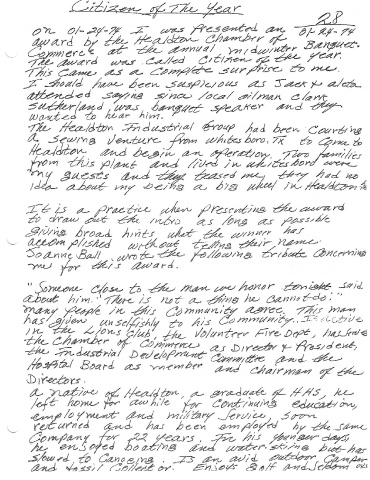 Citizen of The Year
28
01-24-74
on 01-24-74 I was presented an
award by the Healdton Chamber of
Commerce at the annual midwinter Banquet.
The award was called Citizen of the Year.
This came as a complete surprise to me.
I should have been suspicious as Jack & aleta
attended saying since local oilman Clark
Sutherland, was banquet speaker and they
wanted to hear him.
The Healdton Industrial Group had been Courting
a sewing venture from Whitesboro, TX to come to
Healdton and begin an operation. Two families
from this plant and lived in Whitesboro were
my guests and they teased me, they had no
idea about my being a big wheel in Healdton
It is a practice when presenting the award
to draw out the intro as long as possible
giving broad hints what the winner has
accomplished without telling their name.
Joanne Ball, wrote the following tribute concerning
me for this award.
"Someone close to the man we honor tonight said
about him." There is not a thing he Cannot do.
many people in this Community agree. This man
has given unselfishly to his Community. Is active
in the Lions Club, the Volunteer Fire Dept, has served
the Chamber of Commerce as Director & President,
the Industrial Development Committee and the
Hospital Board as member and Chairman of the
Directors.
a native of Healdton, a graduate of HHS, he
left home for awhile for Continuing education,
employment and military service, soon
returned and has been employed by the same
Company for 22 years. In his younger days,
he enjoyed boating and water skiing but has
slowed to Canoeing. Is an avid outdoor Camper
and fossil Collector. Enjoys golf and seldom